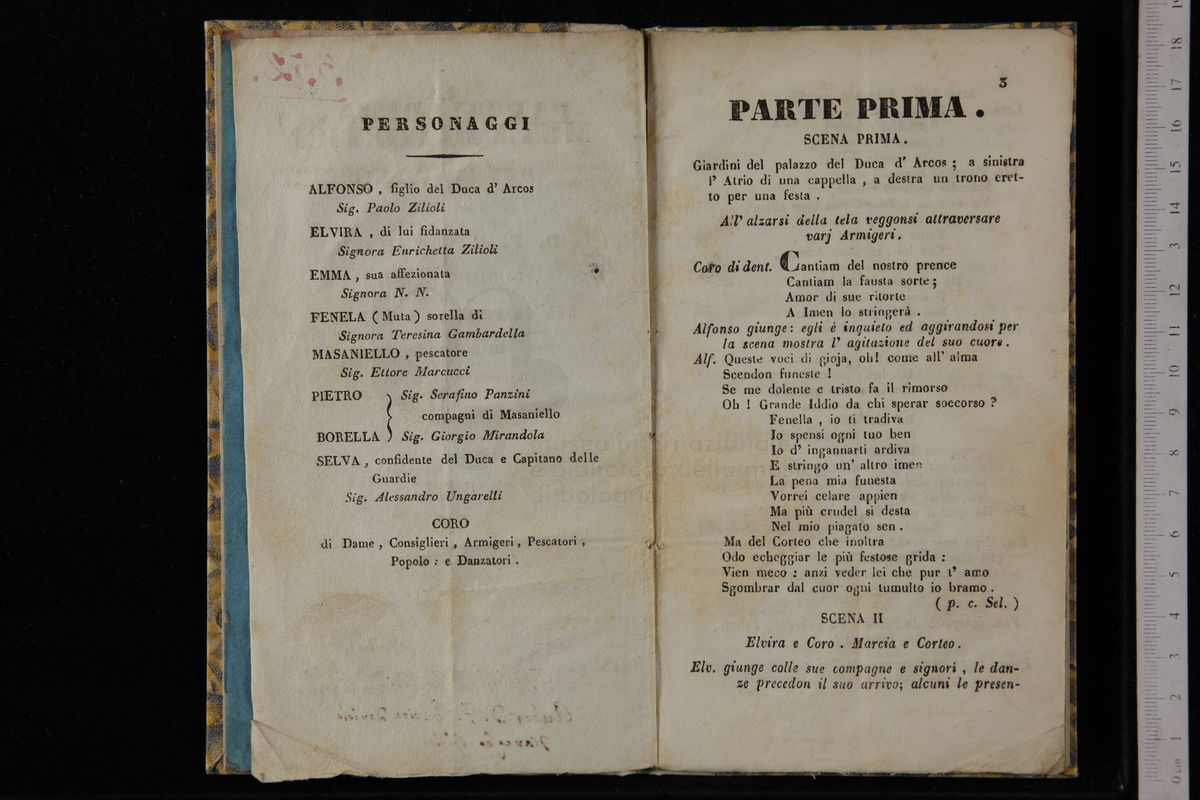 PERSONAGGI
ALFONSO , figlio del Duca d' Arcos
Sig. Paolo Zilioli
ELVIRA , di lui fidanzata
Signora Enrichetta Zilioli
EMMA , sua affezionata
Signora N. N.
FENELA ( Muta ) sorella di
Signora Teresina Gambardella
MASANIELLO , pescatore
Sig. Ettore Marcucci
PIETRO Sig. Serafino Panzini
compagni di Masaniello
BORELLA Sig. Giorgio Mirandola
SELVA , confidente del Duca e Capitano delle
Guardie
Sig. Alessandro Ungarelli
CORO
di Dame , Consiglieri , Armigeri , Pescatori ,
Popolo : e Danzatori .
3
PARTE PRIMA .
SCENA PRIMA .
Giardini del palazzo del Duca d' Arcos ; a sinistra
l' Atrio di una cappella , a destra un trono eret-
to per una festa .
All' alzarsi della tela veggonsi attraversare
varj Armigeri .
Coro di dent. Cantiam del nostro prence
Cantiam la fausta sorte ;
Amor di sue ritorte
A Imen lo stringerà .
Alfonso giunge : egli è inquieto ed aggirandosi per
la scena mostra l' agitazione del suo cuore .
Alf. Queste voci di gioja, oh! come all' alma
Scendon funeste !
Se me dolente e tristo fa il rimorso
Oh ! Grande Iddio da chi sperar soccorso ?
Fenella , io ti tradiva
Io spensi ogni tuo ben
Io d' ingannarti ardiva
E stringo un' altro imen
La pena mia funesta
Vorrei celare appien
Ma più crudel si desta
Nel mio piagato sen .
Ma del Corteo che inoltra
Odo echeggiar le più festose grida :
Vien meco : anzi veder lei che pur t' amo
Sgombrar dal cuor ogni tumulto io bramo .
( p. c. Sel. )
SCENA II
Elvira e Coro . Marcia e Corteo .
Elv. giunge colle sue compagne e signori , le dan-
ze precedon il suo arrivo; alcuni le presen-